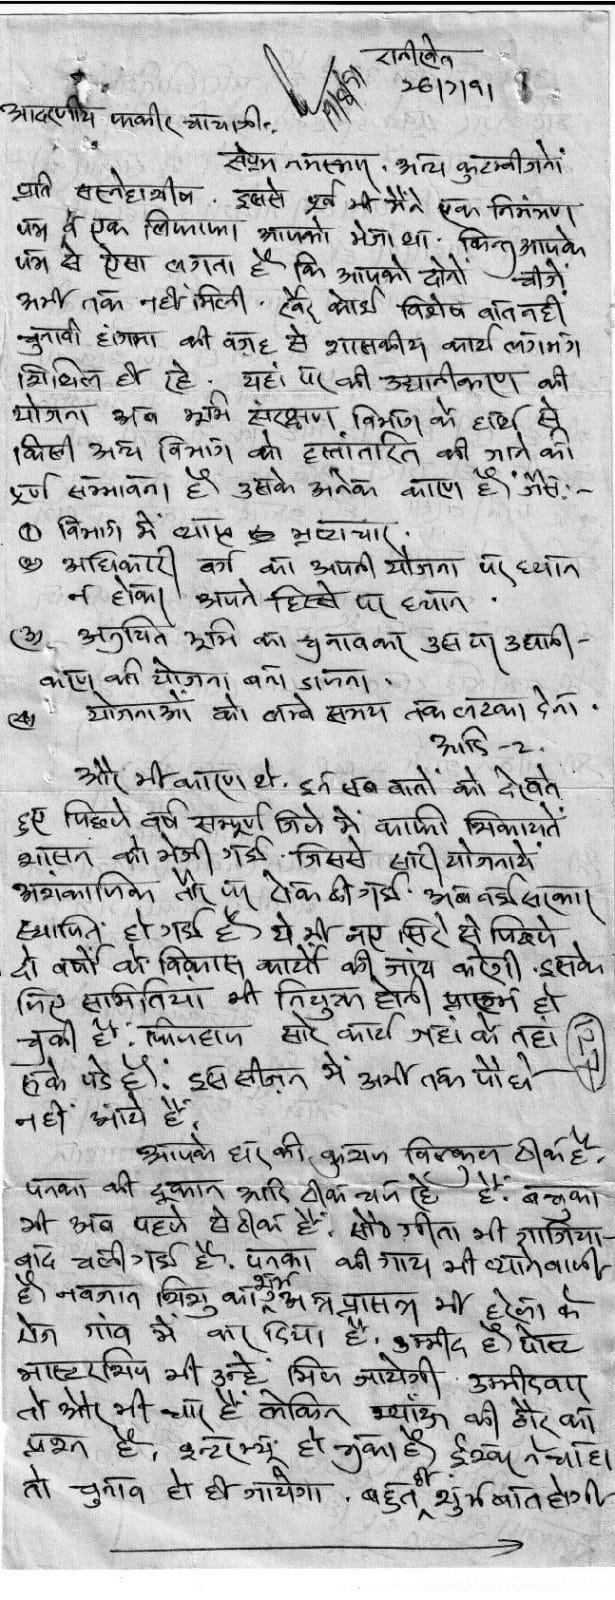 रानीखेत
26/7/91
आदरणीय फकीर चाचाजी,
सप्रेम नमस्कार. अन्य कुटम्बीजनों
प्रति सस्नेहाशीष. इससे पूर्व भी मैंने एक निमंत्रण
पत्र व एक लिफाफा आपको भेजा था. किन्तु आपके
पत्र से ऐसा लगता है कि आपको दोनों चीजें
अभी तक नहीं मिली. खैर कोई विशेष बात नहीं
चुनावी हंगामा की वजह से शासकीय कार्य लगभग
शिथिल ही रहे. यहां पर की उद्यानीकरण की
योजना अब भूमि संरक्षण विभाग के हाथ से
किसी अन्य विभाग को हस्तांतरित की जाने की
पूर्ण सम्भावना है उसके अनेक कारण हैं जैसे:-
① विभाग में व्याप्त भ्रष्टाचार.
② अधिकारी वर्ग का अपनी योजना पर ध्यान
न होकर अपने हिस्से पर ध्यान.
(3) अनुचित भूमि का चुनावकर उस पर उद्यानी-
करण की योजना बना डालना.
(4) योजनाओं को लम्बे समय तक लटका देना.
आदि-2.
और भी कारण थे. इन सब बातों को देखते
हुए पिछले वर्ष सम्पूर्ण जिले में काफी शिकायतें
शासन को भेजी गई. जिससे सारी योजनायें
अंशकालिक तौर पर रोक दी गई. अब नई सरकार
स्थापित हो गई है ये भी नए सिरे से पिछले
दो वर्षों के विकास कार्यों की जांच करेगी. इसके
लिए समितियां भी नियुक्त होनी प्रारम्भ हो
चुकी हैं. फिलहाल सारे कार्य जहां के तहां
रुके पडे हैं. इस सीज़न में अभी तक पौधे
नहीं आये हैं.
आपके घर की कुशल बिल्कुल ठीक है.
पनका की दूकान आदि ठीक चल रहे हैं. बच्चुका
भी अब पहले से ठीक हैं. सौ० गीता भी गाजिया-
बाद चली गई है. पनका की गाय भी ब्यानेवाली
है नवजात शिशु का शुभ अन्नप्रासन्न भी हरेला के
रोज गांव में कर दिया है. उम्मीद है पोस्ट
मास्टरशिप भी उन्हें मिल जायेगी. उम्मीदवार
तो और भी चार हैं लेकिन की ठौर का
प्रश्न है, इन्टरभ्यू हो चुका है ईश्वर ने चाहा
तो चुनाव हो ही जायेगा. बहुत ही शुभ बात होगी